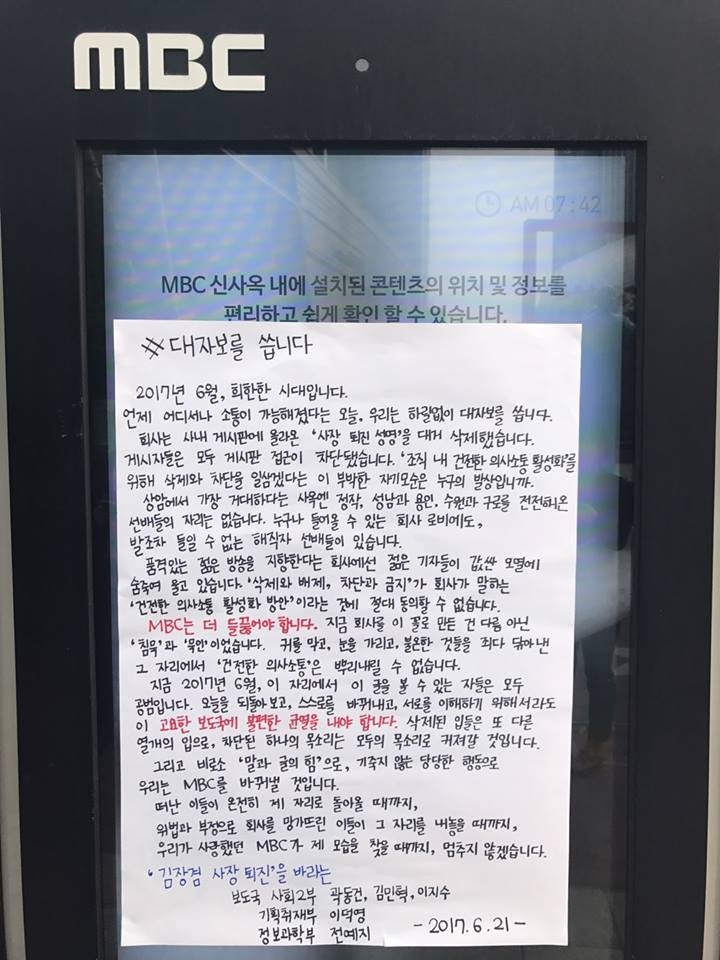 MBC
AM 07:42
MBC 신사옥 내에 설치된 콘텐츠의 위치 및 정보를
편리하고 쉽게 확인 할 수 있습니다.
#대자보를 씁니다
2017년 6월, 희한한 시대입니다.
언제 어디서나 소통이 가능해졌다는 오늘, 우리는 하릴없이 대자보를 씁니다.
회사는 사내 게시판에 올라온 '사장 퇴진 성명'을 대거 삭제했습니다.
게시자들은 모두 게시판 접근이 차단됐습니다. '조직 내 건전한 의사소통 활성화'를
위해 삭제와 차단을 일삼겠다는 이 부박한 자기모순은 누구의 발상입니까.
상암에서 가장 거대하다는 사옥엔 정작, 성남과 용인, 수원과 구로를 전전해온
선배들의 자리는 없습니다. 누구나 들어올 수 있는 회사 로비에도,
발조차 들일 수 없는 해직자 선배들이 있습니다.
품격있는 젊은 방송을 지향한다는 회사에선 젊은 기자들이 값싼 모멸에
숨죽여 울고 있습니다. '삭제와 배제, 차단과 금지'가 회사가 말하는
'건전한 의사소통 활성화 방안'이라는 것에 절대 동의할 수 없습니다.
MBC는 더 들끓어야 합니다. 지금 회사를 이 꼴로 만든 건 다름 아닌
'침묵'과 '묵인'이었습니다. 귀를 막고, 눈을 가리고, 불온한 것들을 죄다 닦아낸
그 자리에서 '건전한 의사소통'은 뿌리내릴 수 없습니다.
지금 2017년 6월, 이 자리에서 이 글을 볼 수 있는 자들은 모두
공범입니다. 오늘을 되돌아보고, 스스로를 바꿔내고, 서로를 이해하기 위해서라도
이 고요한 보도국에 불편한 균열을 내야 합니다. 삭제된 입들은 또 다른
열개의 입으로, 차단된 하나의 목소리는 모두의 목소리로 커져갈 것입니다.
그리고 비로소 '말과 글의 힘'으로, 기죽지 않는 당당한 행동으로
우리는 MBC를 바꿔낼 것입니다.
떠난 이들이 온전히 제 자리로 돌아올 때까지,
위법과 부정으로 회사를 망가뜨린 이들이 그 자리를 내놓을 때까지,
우리가 사랑했던 MBC가 제 모습을 찾을 때까지, 멈추지 않겠습니다.
'김장겸 사장 퇴진'을 바라는
보도국 사회2부 곽동건, 김민혁, 이지수
기획취재부 이덕영
정보과학부 전예지 -2017.6.21-